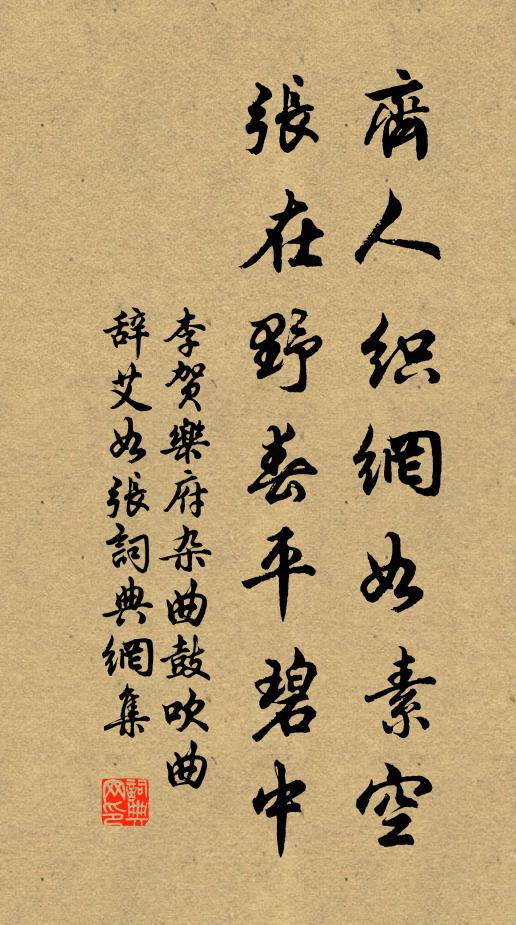 齊人织網如素空
張在野春平碧中
李賀樂府杂曲鼓吹曲
辞艾如張詞典網集
詞典网印